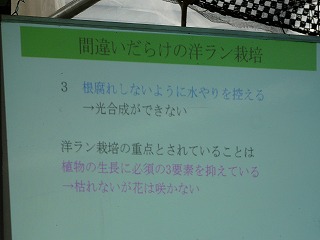 間違いだらけの洋ラン栽培
3 根腐れしないように水やりを控える
→光合成ができない
洋ラン栽培の重点とされていることは
植物の生長に必須の3要素を抑えている
→枯れないが花は咲かない